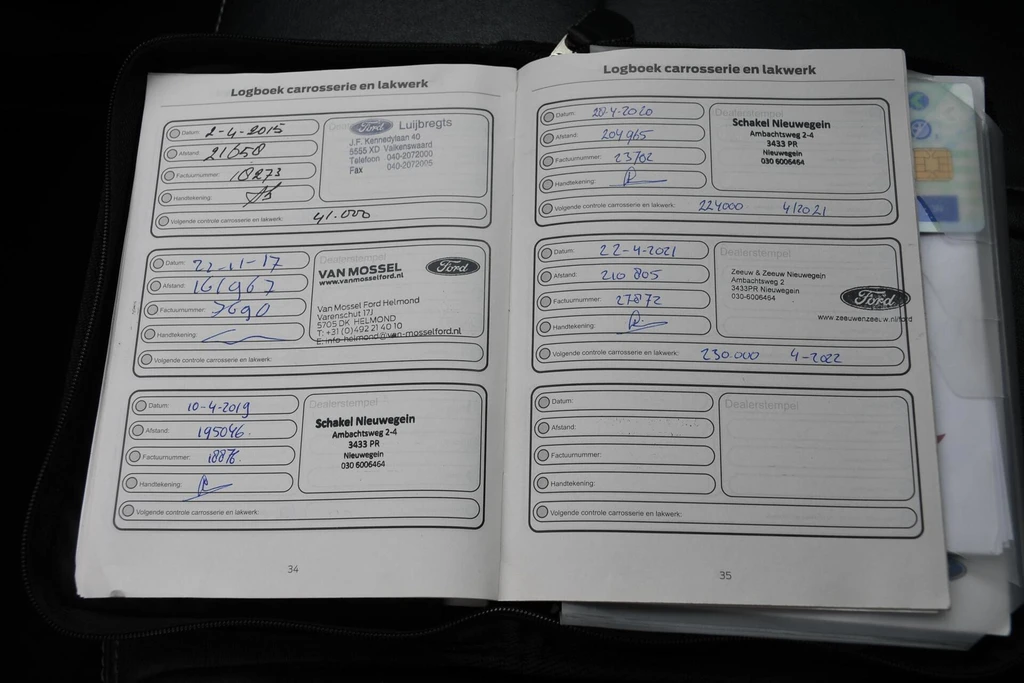 Logboek carrosserie en lakwerk
Datum: 2-4-2015
Afstand: 21658
Factuurnummer: 18273
Handtekening:
Volgende controle carrosserie en lakwerk: 41.000
Ford Luijbregts
J.F. Kennedylaan 40
5555 XD Valkenswaard
Telefoon 040-2072000
Fax 040-2072005
Datum: 22-11-17
Afstand: 161967
Factuurnummer: 7690
Handtekening:
Volgende controle carrosserie en lakwerk:
Dealerstempel
VAN MOSSEL Ford
www.vanmosselford.nl
Van Mossel Ford Helmond
Varenschut 17J
5705 DK HELMOND
T: +31 (0)492 21 40 10
E: info-helmond@van-mosselford.nl
Datum: 10-4-2019
Afstand: 195046
Factuurnummer: 18876
Handtekening:
Volgende controle carrosserie en lakwerk:
Dealerstempel
Schakel Nieuwegein
Ambachtsweg 2-4
3433 PR
Nieuwegein
030 6006464
34
Logboek carrosserie en lakwerk
Datum: 20-4-2020
Afstand: 204965
Factuurnummer: 23702
Handtekening:
Volgende controle carrosserie en lakwerk: 224000 4/2021
Dealerstempel
Schakel Nieuwegein
Ambachtsweg 2-4
3433 PR
Nieuwegein
030 6006464
Datum: 22-4-2021
Afstand: 210 805
Factuurnummer: 27872
Handtekening:
Volgende controle carrosserie en lakwerk: 230.000 4-2022
Dealerstempel
Zeeuw & Zeeuw Nieuwegein
Ambachtsweg 2
3433PR Nieuwegein
030-6006464
Ford
www.zeeuwenzeeuw.nl/ford
Datum:
Afstand:
Factuurnummer:
Handtekening:
Volgende controle carrosserie en lakwerk:
Dealerstempel
35